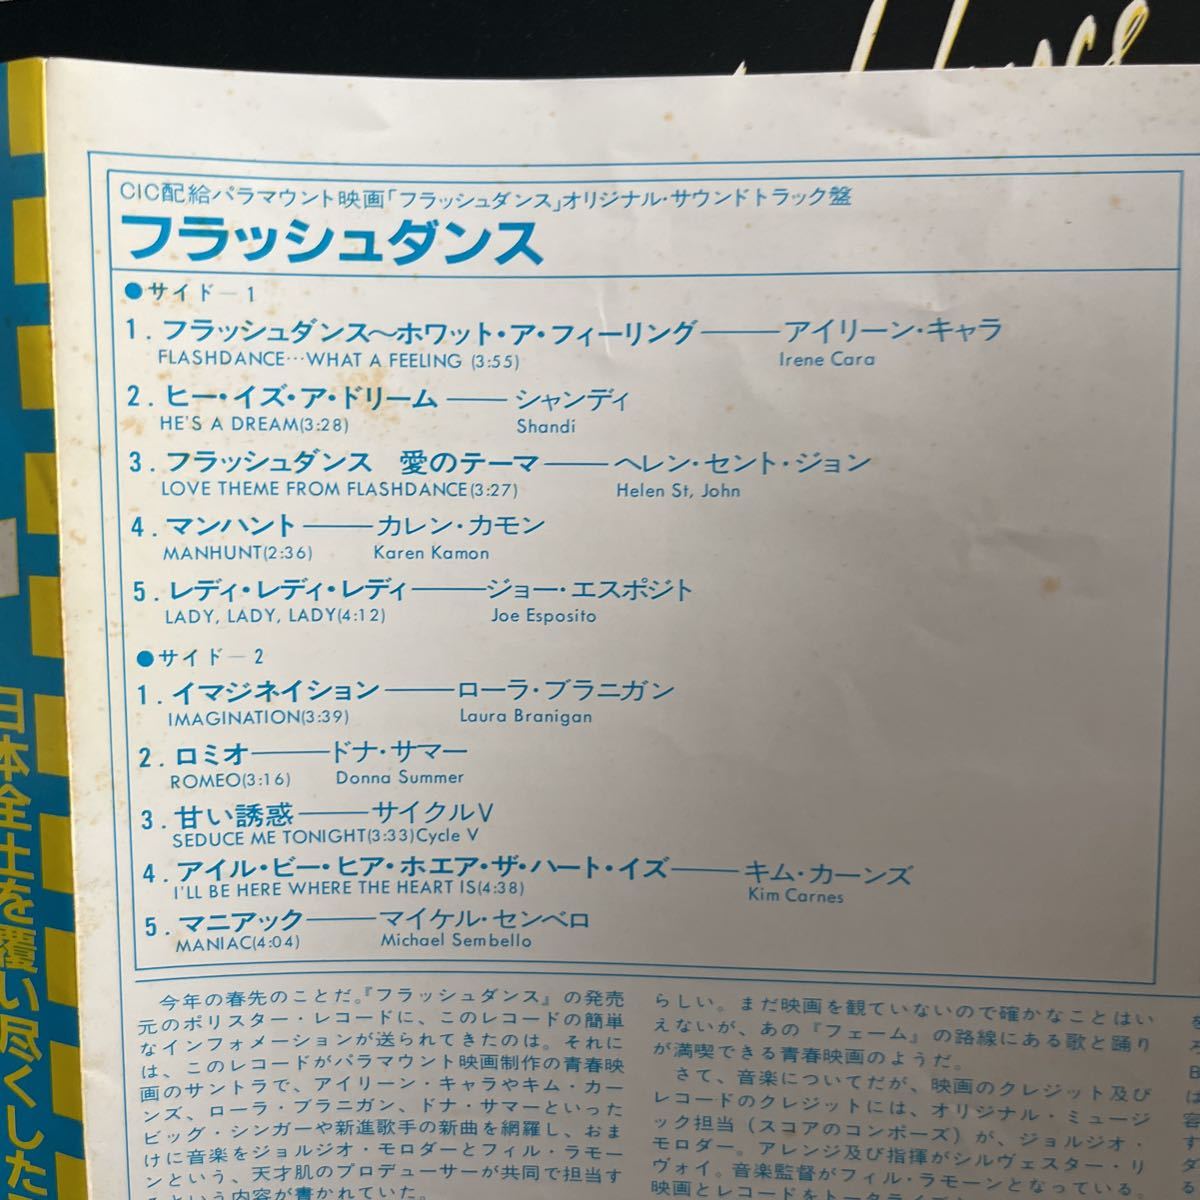 CIC配給パラマウント映画「フラッシュダンス」オリジナル・サウンドトラック盤
フラッシュダンス
●サイド―1
1.フラッシュダンス〜ホワット・ア・フィーリング――アイリーン・キャラ
FLASHDANCE…WHAT A FEELING (3:55) Irene Cara
2.ヒー・イズ・ア・ドリーム――シャンディ
HE'S A DREAM(3:28) Shandi
3.フラッシュダンス 愛のテーマ――ヘレン・セント・ジョン
LOVE THEME FROM FLASHDANCE(3:27) Helen St, John
4.マンハント――カレン・カモン
MANHUNT(2:36) Karen Kamon
5.レディ・レディ・レディ――ジョー・エスポジト
LADY, LADY, LADY(4:12) Joe Esposito
●サイド―2
1.イマジネイション――ローラ・ブラニガン
IMAGINATION(3:39) Laura Branigan
2.ロミオ――ドナ・サマー
ROMEO(3:16) Donna Summer
3.甘い誘惑――サイクルV
SEDUCE ME TONIGHT(3:33)Cycle V
4.アイル・ビー・ヒア・ホエア・ザ・ハート・イズ――キム・カーンズ
I'LL BE HERE WHERE THE HEART IS(4:38) Kim Carnes
5.マニアック――マイケル・センベロ
MANIAC(4:04) Michael Sembello
今年の春先のことだ。『フラッシュダンス』の発売
元のポリスター・レコードに、このレコードの簡単
なインフォメーションが送られてきたのは。それに
は、このレコードがパラマウント映画制作の青春映
画のサントラで、アイリーン・キャラやキム・カー
ンズ、ローラ・ブラニガン、ドナ・サマーといった
ビッグ・シンガーや新進歌手の新曲を網羅し、おま
けに音楽をジョルジオ・モロダーとフィル・ラモー
ンという、天才肌のプロデューサーが共同で担当す
るという内容が書かれていた。
らしい。まだ映画を観ていないので確かなことはい
えないが、あの『フェーム』の路線にある歌と踊り
が満喫できる青春映画のようだ。
さて、音楽についてだが、映画のクレジット及び
レコードのクレジットには、オリジナル・ミュージ
ック担当（スコアのコンポーズ）が、ジョルジオ・
モロダー。アレンジ及び指揮がシルヴェスター・リ
ヴォイ。音楽監督がフィル・ラモーンとなっている。
映画とレコードをトータライ
日本全土を覆い尽くした